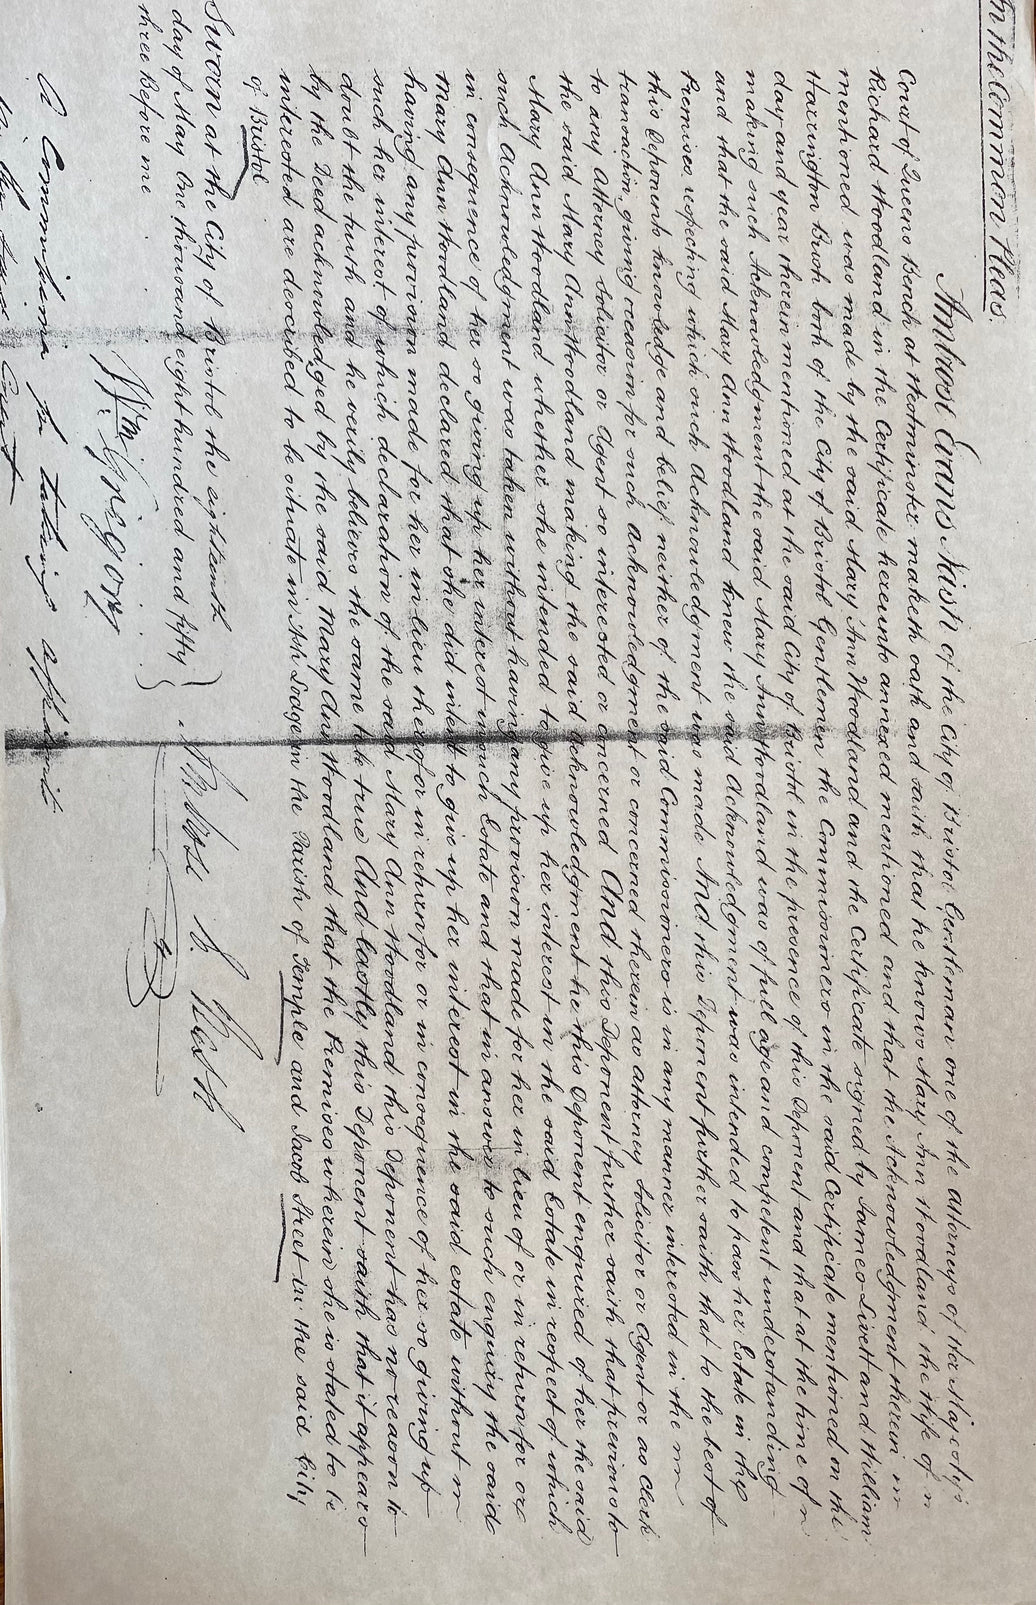 In the Common Pleas.
Ambrose Evans Naish of the City of Bristol Gentleman one of the Attorneys of Her Majesty's
Court of Queens Bench at Westminster maketh oath and saith that he knows Mary Ann Woodland the Wife of
Richard Woodland in the Certificate hereunto annexed mentioned and that the Acknowledgment therein
mentioned was made by the said Mary Ann Woodland and the Certificate signed by James Livett and William
Harrington Bush both of the City of Bristol Gentlemen the Commissioners in the said Certificate mentioned on the
day and year therein mentioned at the said City of Bristol in the presence of this Deponent and that at the time of
making such Acknowledgment the said Mary Ann Woodland was of full age and competent understanding
and that the said Mary Ann Woodland knew the said Acknowledgment was intended to pass her Estate in the
Premises respecting which such Acknowledgment was made And this Deponent further saith that to the best of
this Deponents knowledge and belief neither of the said Commissioners is in any manner interested in the
transaction giving occasion for such acknowledgment or concerned therein as attorney Solicitor or Agent or as Clerk
to any Attorney Solicitor or Agent so interested or concerned And this Deponent further saith that previous to
the said Mary Ann Woodland making the said Acknowledgment he this Deponent enquired of her the said
Mary Ann Woodland whether she intended to give up her interest in the said Estate in respect of which
such Acknowledgment was taken without having any provision made for her in lieu of or in return for or
in consequence of her so giving up her interest in such Estate and that in answer to such enquiry the said
Mary Ann Woodland declared that she did intend to give up her interest in the said estate without
having any provision made for her in lieu therefor in return for or in consequence of her so giving up
such her interest of which declaration of the said Mary Ann Woodland this Deponent has no reason to
doubt the truth and he verily believes the same to be true And lastly this Deponent saith that it appears
by the Deed acknowledged by the said Mary Ann Woodland that the Premises wherein she is stated to be
interested are described to be situate in Ash Lodge in the Parish of Temple and Jacob Street in the said City
of Bristol
Sworn at the City of Bristol the eighteenth
day of May One thousand eight hundred and fifty
three Before me
Wm Gregory
A Commissioner for taking affidavits